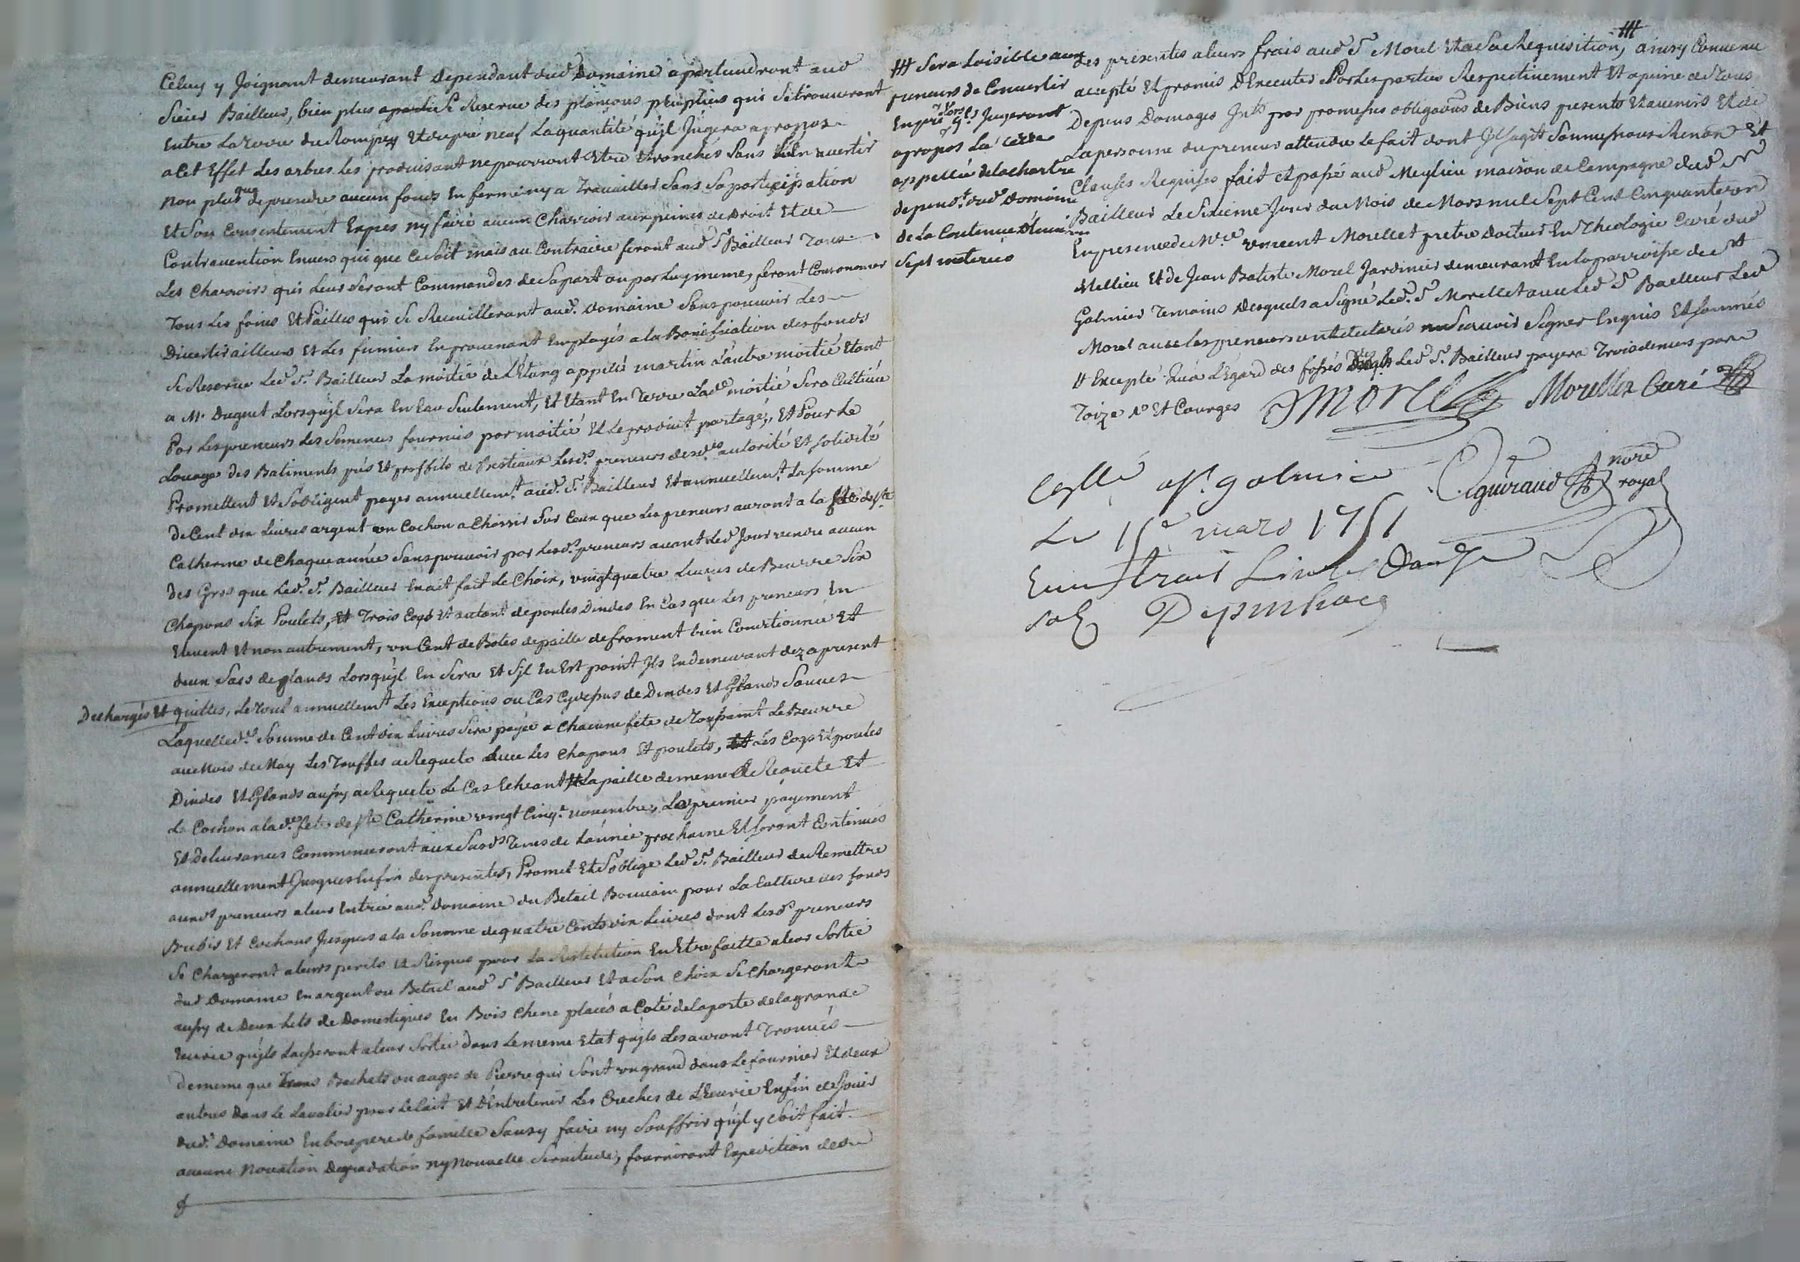 Celuy y Joignant demeurant dependant dud Domaine apartiendront aud
Sieur Bailleur, bien plus Se Reserve des plançons peupliers qui Se trouveront
Entre La Terre du Rompey Et le pré neuf La quantité qu'jl Jugera apropos
a Cet Effet Les arbres Les produisant ne pourront Etre Etronchés Sans L'En avertir
Non plus que de prendre aucun fonds En ferme ny a Travailler Sans Sa participation
Et Son Consentement Expres ny faire aucun Charroir aux peines de Droit Et de
Contravention Envers qui que Ce Soit mais au Contraire feront aud Sr Bailleur Tous
Les Charroirs qui Leur Seront Commandés de Sa part ou par Luy meme, feront Consommer
Tous Les foins Et Pailles qui Se Recueilleront aud. Domaine Sans pouvoir Les
Divertir ailleurs Et Les fumiers En provenant Employés a la Bonification des fonds
Se Reserve Led. Sr. Bailleur La moitié de L'Etang appellé martin L'autre moitié Etant
a Mr. Duguet Lorsqu'jl Sera En Eau Seulement, Et Etant En Terre Lade moitié Sera Cultivée
Par Les preneurs Les Semences fournies par moitié Et Le produit partagé, Et Pour Le
Louage des Batiments prés Et proffits de Bestiaux Lesds preneurs desds autorité Et Solidité
Promettent Et S'obligent payer annuellemt. aud. Sr. Bailleur Et annuellemt. La Somme
De Cent dix Livres argent un Cochon a Choisir Sur Ceux que Les preneurs auront a la fete de Ste
Catherine de Chaque année Sans pouvoir par Lesds preneurs avant Led Jour vendre aucun
Des Gros que Led. Sr. Bailleur En ait fait Le Choix, vingt quatre Livres de Beurre Six
Chapons Six Poulets, Et Trois Coqs Et autant de poules Dindes En Cas que Les preneurs En
Elevent Et non autrement, un Cent de Botes de paille de froment bien Conditionnée Et
deux Sacs de glands Lorsqu'jl En Sera Et S'jl En Est point Jls En demeurent dez a present
Dechargés Et quittes, Le Tout annuellement Les Exceptions au Cas Cydessus de Dindes Et Glands Sauves
Laquelle de. Somme de Cent dix Livres Sera payée a Chacune fete de Toussaint Le Beurre
au Mois de May Les Truffes a Requete avec Les Chapons Et poulets, Les Coqs Et poules
Dindes Et Glands aussy a Requete Le Cas Echeant La paille de meme a Requete Et
Le Cochon a lade. fete de Ste Catherine vingt Cinqe. novembre, Le premier payement
Et Delivrances Commenceront aux Susds Termes de L'année prochaine Et Seront Continués
annuellement Jusques En fin des presentes, Promet Et S'oblige Led Sr. Bailleur de Remettre
auxds preneurs a leur Entrée aud. Domaine du Betail Bouvain pour La Culture des fonds
Brebis Et Cochons Jusques a la Somme de quatre Cents dix Livres dont Lesds preneurs
Se Chargeront a leurs perils Et Risques pour La Restitution En Etre faitte a leur Sortie
dud Domaine En argent ou Betail aud Sr Bailleur Et a Son Choix Se Chargeront
aussy de Deux Lits de Domestiques En Bois Chene placés a Coté de la porte de la grande
Ecurie qu'jls Laisseront a leur Sortie Dans Le meme Etat qu'jls Les auront Trouvés
de meme que Trois Bachats ou auges de Pierre qui Sont un grand dans Le fournier Et deux
autres Dans Le Cavalier pour Le Lait Et D'Entretenir Les Creches de L'Ecurie Enfin de Jouir
Dud. Domaine En bon pere de famille Sans y faire ny Souffrir qu'jl y Soit fait
aucune Novation Degradation ny Nouvelle Servitude, fourniront Expedition des
Sera Loisible aux
preneurs de Convertir
En pré Lorsqu'jls Jugeront
apropos La Terre
appellée de la chartre
dependt. dud Domaine
de La Contenue D'Environ
Sept meterées
des presentes a leurs frais aud Sr. Morel Et a Sa Requisition, ainsy Convenu
accepté Et promis D'Executer Par Les parties Respectivement Et a peine de Tous
Depens Domages Jnts par promesses obligaons de Biens presents Et avenirs Et de
La personne du preneur attendu Le fait dont Jl S'agit Soumissions Renon Et
Clauses Requises fait Et passé aud Meylieu maison de Campagne dud Sr
Bailleur Le Sixieme Jour du Mois de Mars mil Sept Cent Cinquante un
En presence de Mre vincent Morellet pretre Docteur En Theologie Curé dud
Mellieu Et de Jean Batiste Morel Jardinier demeurant En la parroisse de St
Galmier Temoins Desquels a Signé Led. Sr Morellet avec Led Sr Bailleur Led
Morel avec Les preneurs ont declarés ne Scavoir Signer Enquis Et Sommés
Excepté Qu'a L'Egard des fossés Led Sr. Bailleur payera Trois deniers par
Toize Et Courges
JMOREL Morellet Curé
Cgueraud nore royal
Cllé a St galmier
Le 15e mars 1751